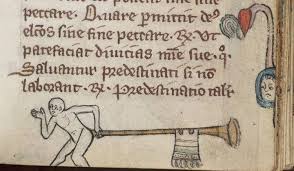 peccare. Quare p̄mittit deꝰ
elcōs sine fine peccare. ℞ Ut
patefaciat divicias mīe sue. q̄.
Salvantur predestinati si nō
laborant. ℞ Predestinatio tal̄